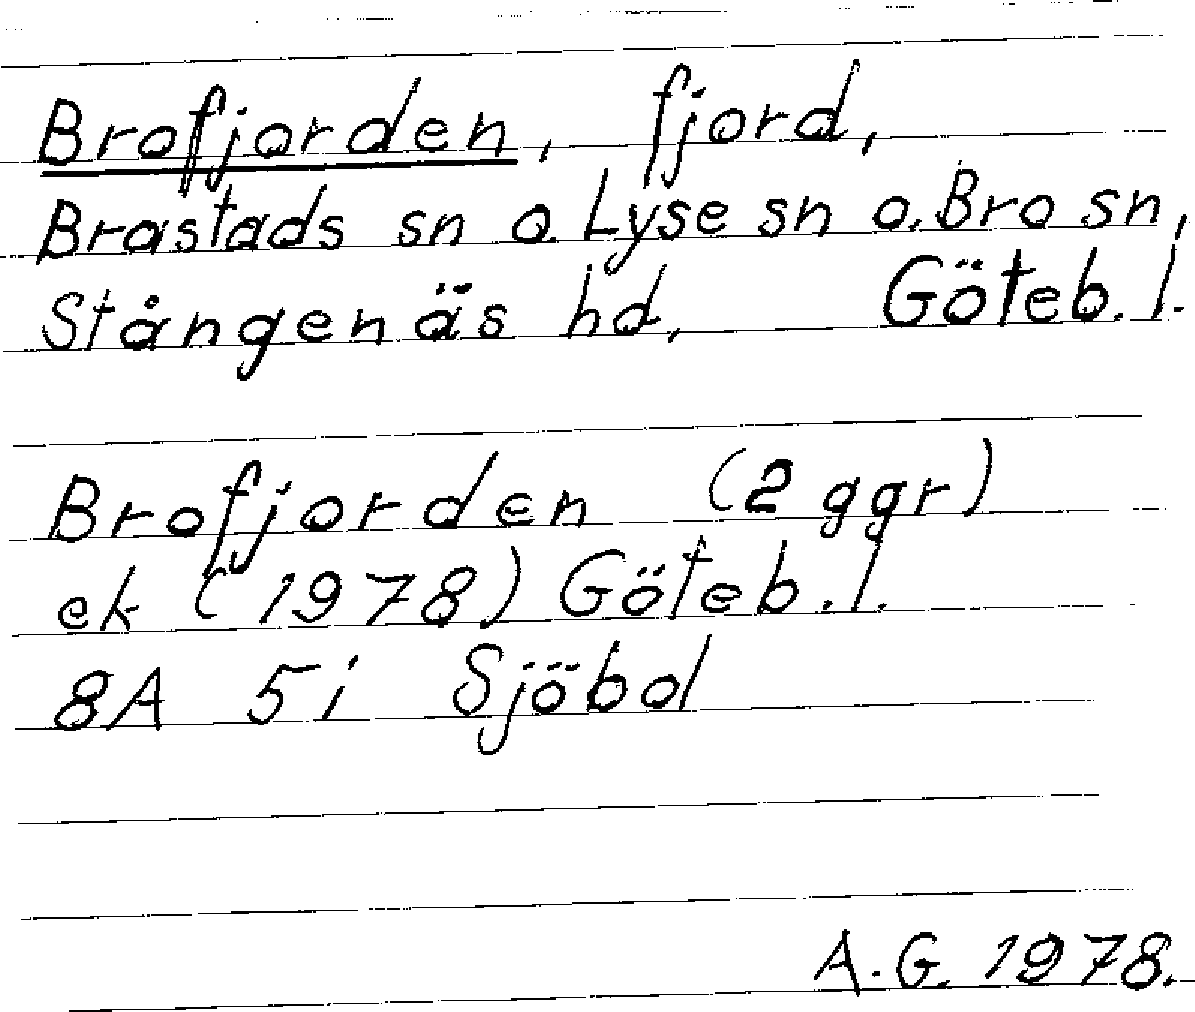 Brofjorden, fjord,
Brastads sn o. Lyse sn o. Bro sn,
Stångenäs hd, Göteb. l.
Brofjorden (2 ggr)
ek (1978) Göteb. l.
8A 5i Sjöbol
A.G. 1978.